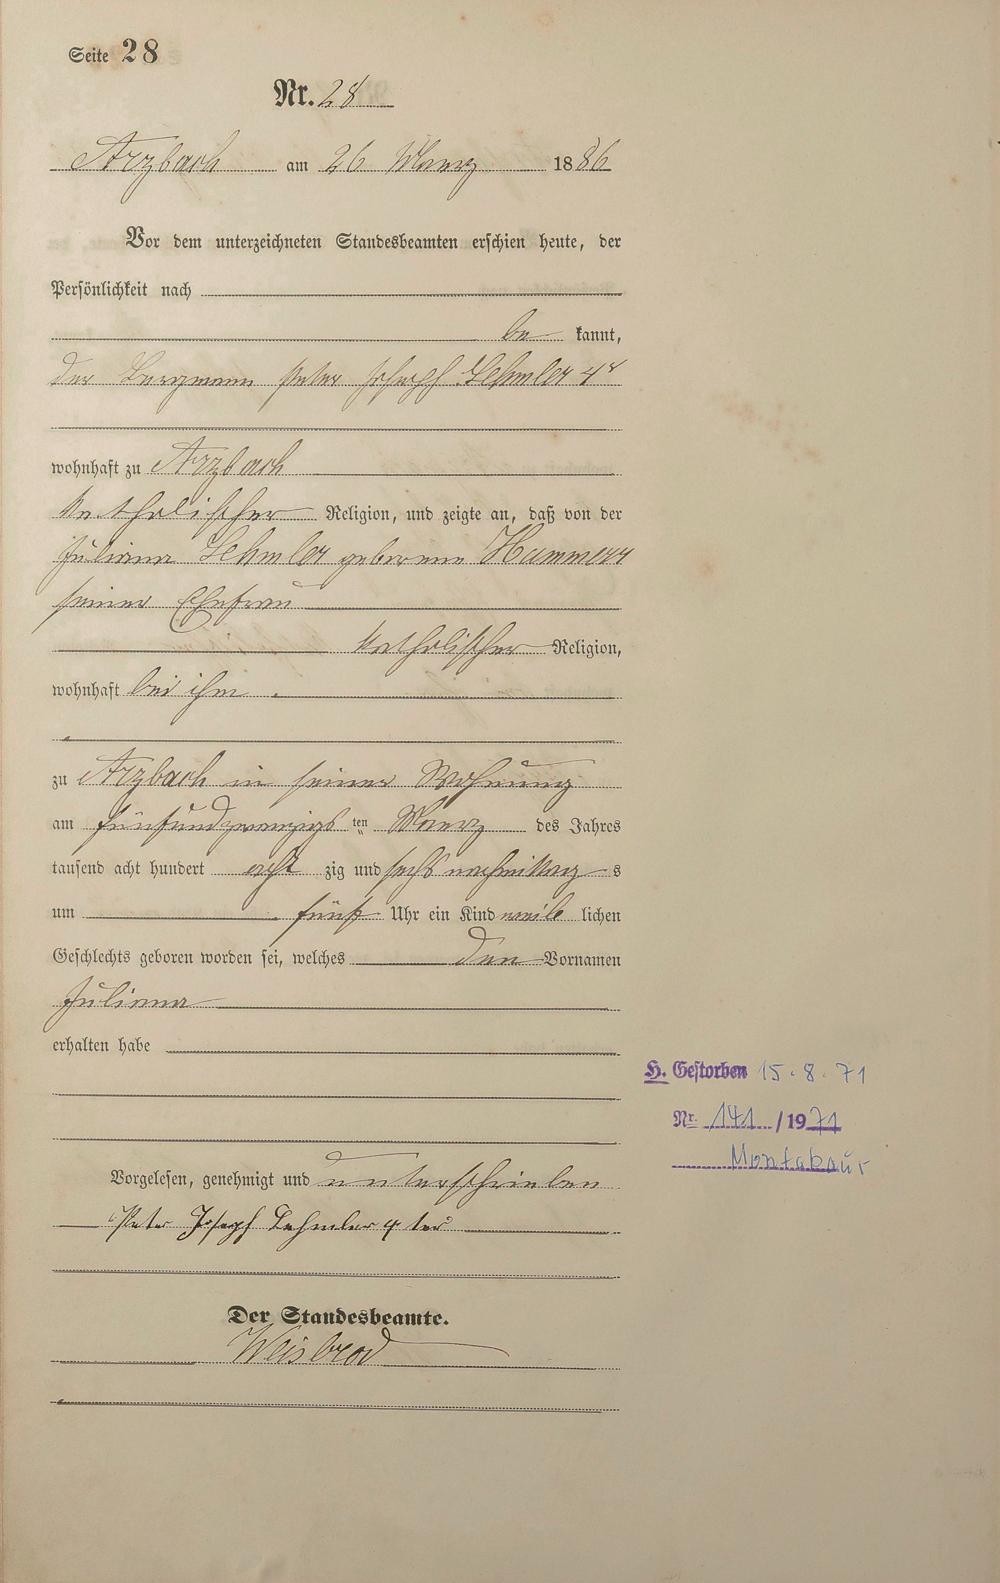 Seite 28
Nr. 28
Arzbach am 26 Maerz 1886
Vor dem unterzeichneten Standesbeamten erschien heute, der
Persönlichkeit nach
be kannt,
der Bergmann Peter Joseph Lehmler 4r
wohnhaft zu Arzbach
katholischer Religion, und zeigte an, daß von der
Juliana Lehmler geborene Hammerr
seiner Ehefrau
katholischer Religion,
wohnhaft bei ihm.
zu Arzbach in seiner Wohnung
am fünfundzwanzigs ten Maerz des Jahres
tausend acht hundert acht zig und sechs nachmittag s
um fünf Uhr ein Kind weib lichen
Geschlechts geboren worden sei, welches den Vornamen
Juliana
erhalten habe
H. Gestorben 15.8.71
Nr. 141 / 1971
Montabaur
Vorgelesen, genehmigt und unterschrieben
Peter Joseph Lehmler 4 ter
Der Standesbeamte.
Weisbrod